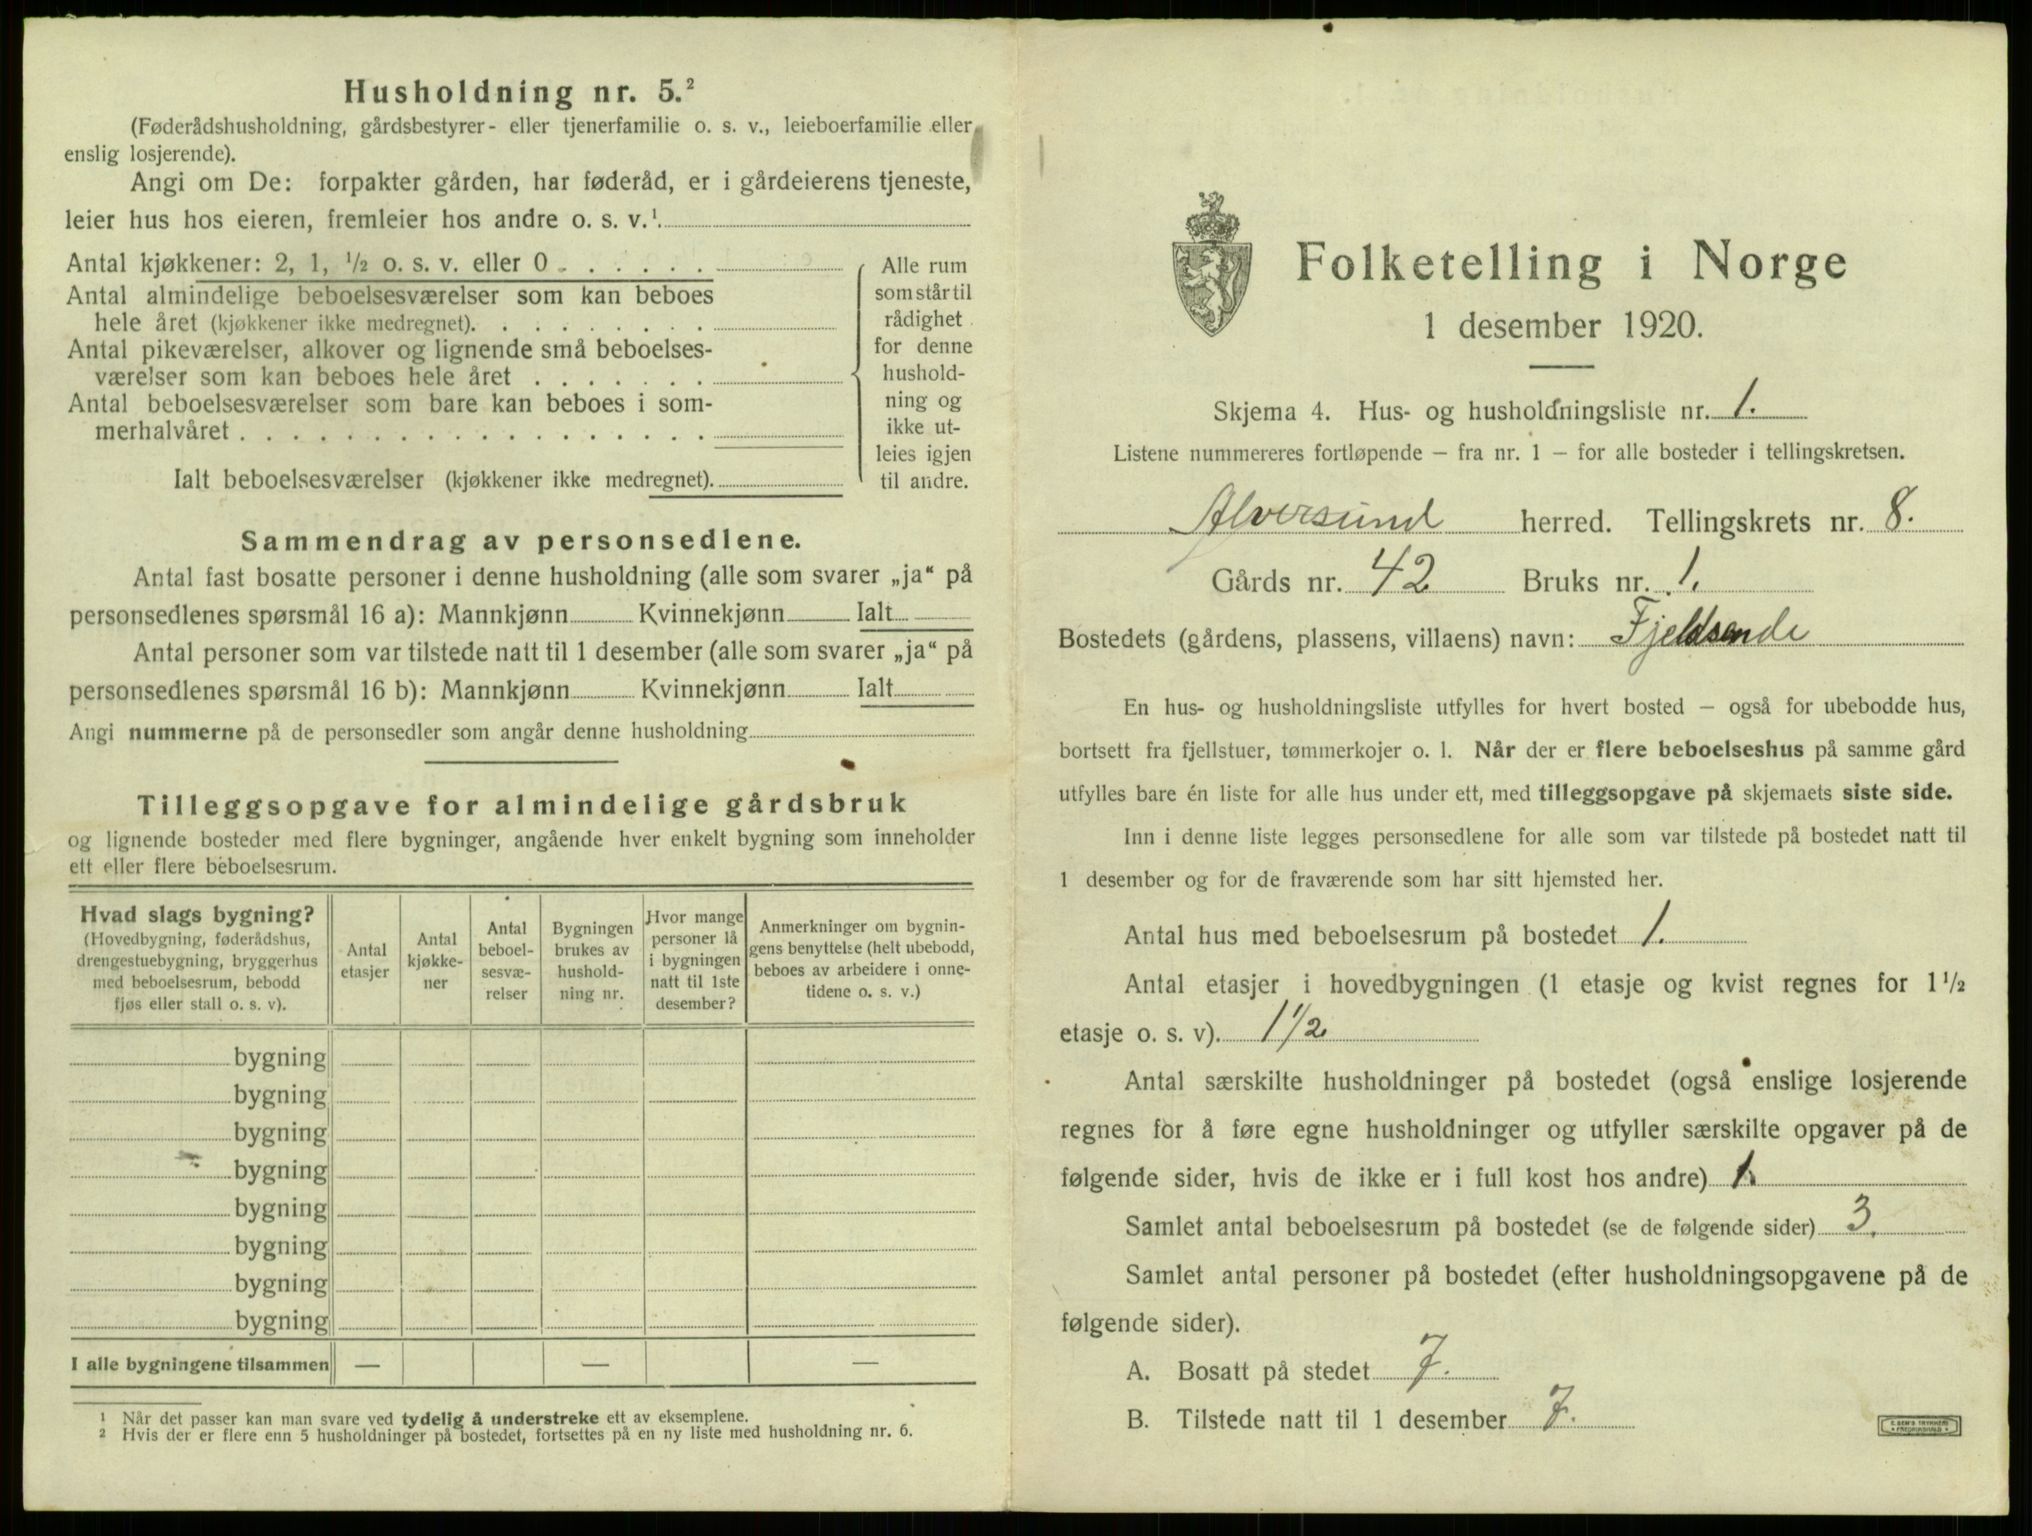 Husholdning nr. 5.²
(Føderådshusholdning, gårdsbestyrer- eller tjenerfamilie o. s. v., leieboerfamilie eller
enslig losjerende).
Angi om De: forpakter gården, har føderåd, er i gårdeierens tjeneste,
leier hus hos eieren, fremleier hos andre o. s. v.¹
Antal kjøkkener: 2, 1, ½ o. s. v. eller 0
Antal almindelige beboelsesværelser som kan beboes
hele året (kjøkkener ikke medregnet).
Antal pikeværelser, alkover og lignende små beboelses-
værelser som kan beboes hele året
Antal beboelsesværelser som bare kan beboes i som-
merhalvåret
Ialt beboelsesværelser (kjøkkener ikke medregnet).
Alle rum
som står til
rådighet
for denne
hushold-
ning og
ikke ut-
leies igjen
til andre.
Sammendrag av personsedlene.
Antal fast bosatte personer i denne husholdning (alle som svarer „ja“ på
personsedlenes spørsmål 16 a): Mannkjønn Kvinnekjønn Ialt
Antal personer som var tilstede natt til 1 desember (alle som svarer „ja“ på
personsedlenes spørsmål 16 b): Mannkjønn Kvinnekjønn Ialt
Angi nummerne på de personsedler som angår denne husholdning
Tilleggsopgave for almindelige gårdsbruk
og lignende bosteder med flere bygninger, angående hver enkelt bygning som inneholder
ett eller flere beboelsesrum.
Hvad slags bygning?
(Hovedbygning, føderådshus,
drengestuebygning, bryggerhus
med beboelsesrum, bebodd
fjøs eller stall o. s. v).
Antal
etasjer
Antal
kjøkke-
ner
Antal
beboel-
sesvæ-
relser
Bygningen
brukes av
hushold-
ning nr.
Hvor mange
personer lå
i bygningen
natt til 1ste
desember?
Anmerkninger om bygnin-
gens benyttelse (helt ubebodd,
beboes av arbeidere i onne-
tidene o. s. v.)
bygning
bygning
bygning
bygning
bygning
bygning
bygning
bygning
I alle bygningene tilsammen — — —
¹ Når det passer kan man svare ved tydelig å understreke ett av eksemplene.
² Hvis der er flere enn 5 husholdninger på bostedet, fortsettes på en ny liste med husholdning nr. 6.
Folketelling i Norge
1 desember 1920.
Skjema 4. Hus- og husholdningsliste nr. 1.
Listene nummereres fortløpende – fra nr. 1 – for alle bosteder i tellingskretsen.
Alversund herred. Tellingskrets nr. 8.
Gårds nr. 42 Bruks nr. 1.
Bostedets (gårdens, plassens, villaens) navn: Fjeldsende
En hus- og husholdningsliste utfylles for hvert bosted – også for ubebodde hus,
bortsett fra fjellstuer, tømmerkojer o. l. Når der er flere beboelseshus på samme gård
utfylles bare én liste for alle hus under ett, med tilleggsopgave på skjemaets siste side.
Inn i denne liste legges personsedlene for alle som var tilstede på bostedet natt til
1 desember og for de fraværende som har sitt hjemsted her.
Antal hus med beboelsesrum på bostedet 1.
Antal etasjer i hovedbygningen (1 etasje og kvist regnes for 1½
etasje o. s. v). 1½
Antal særskilte husholdninger på bostedet (også enslige losjerende
regnes for å føre egne husholdninger og utfyller særskilte opgaver på de
følgende sider, hvis de ikke er i full kost hos andre) 1.
Samlet antal beboelsesrum på bostedet (se de følgende sider) 3.
Samlet antal personer på bostedet (efter husholdningsopgavene på de
følgende sider).
A. Bosatt på stedet 7.
B. Tilstede natt til 1 desember 7.